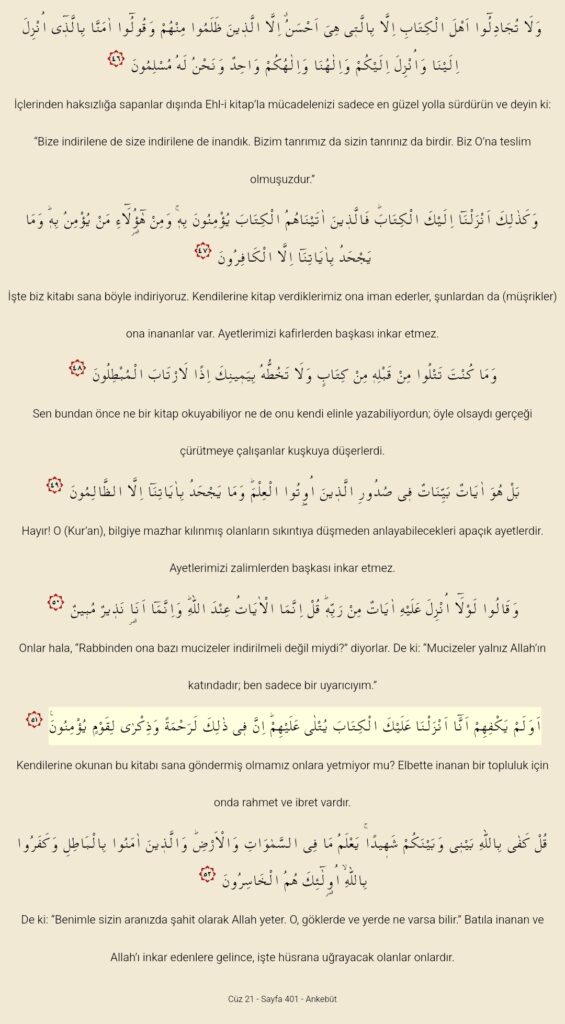 وَلَا تُجَادِلُٓوا اَهْلَ الْكِتَابِ اِلَّا بِالَّت۪ي هِيَ اَحْسَنُۗ اِلَّا الَّذ۪ينَ ظَلَمُوا مِنْهُمْ وَقُولُٓوا اٰمَنَّا بِالَّذ۪ٓي اُنْزِلَ
اِلَيْنَا وَاُنْزِلَ اِلَيْكُمْ وَاِلٰهُنَا وَاِلٰهُكُمْ وَاحِدٌ وَنَحْنُ لَهُ مُسْلِمُونَ ﴿٤٦﴾
İçlerinden haksızlığa sapanlar dışında Ehl-i kitap’la mücadelenizi sadece en güzel yolla sürdürün ve deyin ki:
“Bize indirilene de size indirilene de inandık. Bizim tanrımız da sizin tanrınız da birdir. Biz O’na teslim
olmuşuzdur.”
وَكَذٰلِكَ اَنْزَلْنَٓا اِلَيْكَ الْكِتَابَۜ فَالَّذ۪ينَ اٰتَيْنَاهُمُ الْكِتَابَ يُؤْمِنُونَ بِه۪ۚ وَمِنْ هٰٓؤُ۬لَٓاءِ مَنْ يُؤْمِنُ بِه۪ۜ وَمَا
يَجْحَدُ بِاٰيَاتِنَٓا اِلَّا الْكَافِرُونَ ﴿٤٧﴾
İşte biz kitabı sana böyle indiriyoruz. Kendilerine kitap verdiklerimiz ona iman ederler, şunlardan da (müşrikler)
ona inananlar var. Ayetlerimizi kafirlerden başkası inkar etmez.
وَمَا كُنْتَ تَتْلُوا مِنْ قَبْلِه۪ مِنْ كِتَابٍ وَلَا تَخُطُّهُ بِيَم۪ينِكَ اِذًا لَارْتَابَ الْمُبْطِلُونَ ﴿٤٨﴾
Sen bundan önce ne bir kitap okuyabiliyor ne de onu kendi elinle yazabiliyordun; öyle olsaydı gerçeği
çürütmeye çalışanlar kuşkuya düşerlerdi.
بَلْ هُوَ اٰيَاتٌ بَيِّنَاتٌ ف۪ي صُدُورِ الَّذ۪ينَ اُو۫تُوا الْعِلْمَۜ وَمَا يَجْحَدُ بِاٰيَاتِنَٓا اِلَّا الظَّالِمُونَ ﴿٤٩﴾
Hayır! O (Kur’an), bilgiye mazhar kılınmış olanların sıkıntıya düşmeden anlayabilecekleri apaçık ayetlerdir.
Ayetlerimizi zalimlerden başkası inkar etmez.
وَقَالُوا لَوْلَٓا اُنْزِلَ عَلَيْهِ اٰيَاتٌ مِنْ رَبِّه۪ۜ قُلْ اِنَّمَا الْاٰيَاتُ عِنْدَ اللّٰهِۜ وَاِنَّمَٓا اَنَا۬ نَذ۪يرٌ مُب۪ينٌ ﴿٥٠﴾
Onlar hala, “Rabbinden ona bazı mucizeler indirilmeli değil miydi?” diyorlar. De ki: “Mucizeler yalnız Allah’ın
katındadır; ben sadece bir uyarıcıyım.”
اَوَلَمْ يَكْفِهِمْ اَنَّٓا اَنْزَلْنَا عَلَيْكَ الْكِتَابَ يُتْلٰى عَلَيْهِمْۜ اِنَّ ف۪ي ذٰلِكَ لَرَحْمَةً وَذِكْرٰى لِقَوْمٍ يُؤْمِنُونَ۟ ﴿٥١﴾
Kendilerine okunan bu kitabı sana göndermiş olmamız onlara yetmiyor mu? Elbette inanan bir topluluk için
onda rahmet ve ibret vardır.
قُلْ كَفٰى بِاللّٰهِ بَيْن۪ي وَبَيْنَكُمْ شَه۪يدًاۚ يَعْلَمُ مَا فِي السَّمٰوَاتِ وَالْاَرْضِۜ وَالَّذ۪ينَ اٰمَنُوا بِالْبَاطِلِ وَكَفَرُوا
بِاللّٰهِۙ اُو۬لٰٓئِكَ هُمُ الْخَاسِرُونَ ﴿٥٢﴾
De ki: “Benimle sizin aranızda şahit olarak Allah yeter. O, göklerde ve yerde ne varsa bilir.” Batıla inanan ve
Allah’ı inkar edenlere gelince, işte hüsrana uğrayacak olanlar onlardır.
Cüz 21 - Sayfa 401 - Ankebût